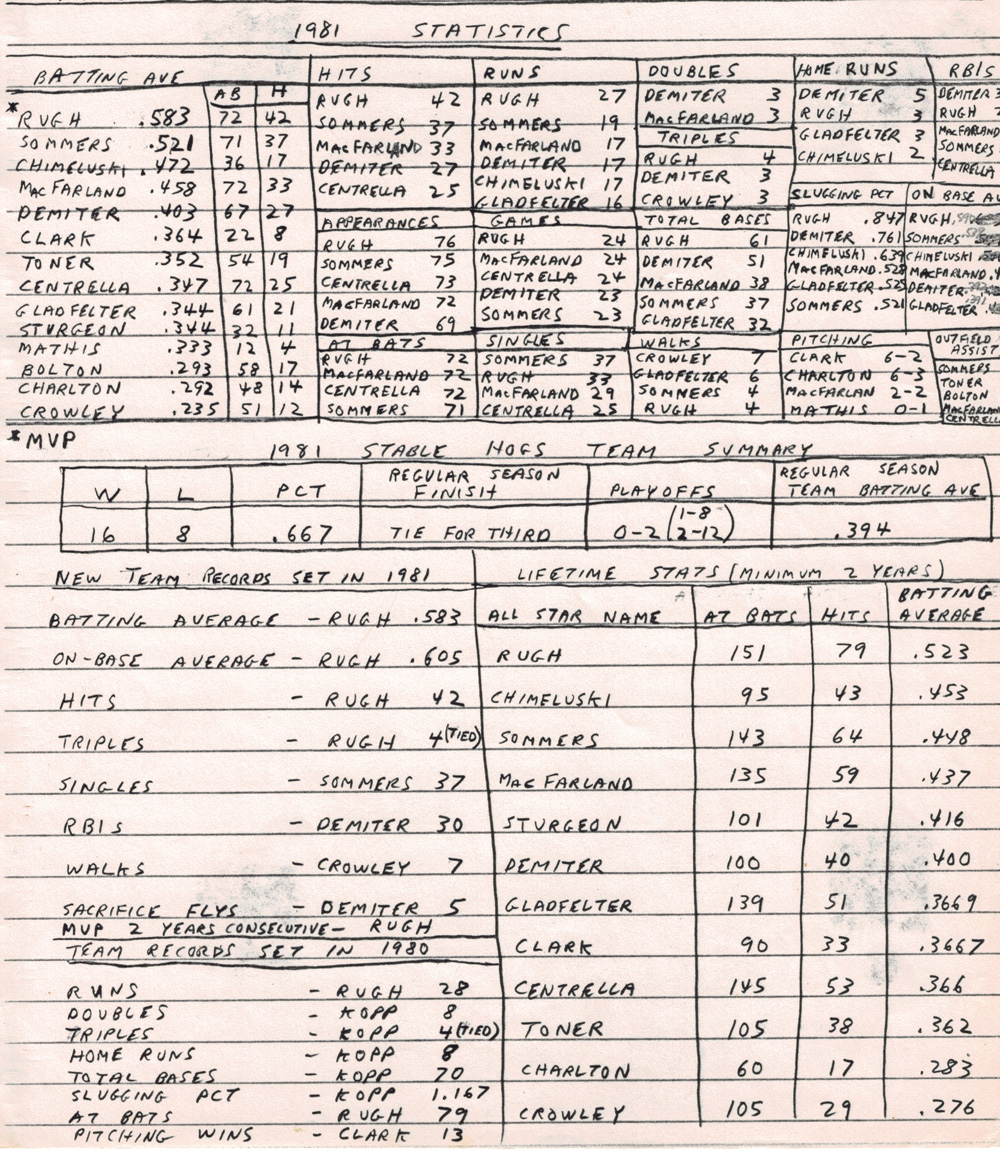 1981 STATISTICS
BATTING AVE
AB H
*RUGH .583 72 42
SOMMERS .521 71 37
CHIMELUSKI .472 36 17
MACFARLAND .458 72 33
DEMITER .403 67 27
CLARK .364 22 8
TONER .352 54 19
CENTRELLA .347 72 25
GLADFELTER .344 61 21
STURGEON .344 32 11
MATHIS .333 12 4
BOLTON .293 58 17
CHARLTON .292 48 14
CROWLEY .235 51 12
*MVP
HITS
RUGH 42
SOMMERS 37
MACFARLAND 33
DEMITER 27
CENTRELLA 25
APPEARANCES
RUGH 76
SOMMERS 75
CENTRELLA 73
MACFARLAND 72
DEMITER 69
AT BATS
RUGH 72
MACFARLAND 72
CENTRELLA 72
SOMMERS 71
RUNS
RUGH 27
SOMMERS 19
MACFARLAND 17
DEMITER 17
CHIMELUSKI 17
GLADFELTER 16
GAMES
RUGH 24
MACFARLAND 24
CENTRELLA 24
DEMITER 23
SOMMERS 23
SINGLES
SOMMERS 37
RUGH 33
MACFARLAND 29
CENTRELLA 25
DOUBLES
DEMITER 3
MACFARLAND 3
TRIPLES
RUGH 4
DEMITER 3
CROWLEY 3
TOTAL BASES
RUGH 61
DEMITER 51
MACFARLAND 38
SOMMERS 37
GLADFELTER 32
WALKS
CROWLEY 7
GLADFELTER 6
SOMMERS 4
RUGH 4
HOME RUNS
DEMITER 5
RUGH 3
GLADFELTER 3
CHIMELUSKI 2
SLUGGING PCT
RUGH .847
DEMITER .761
CHIMELUSKI .639
MACFARLAND .528
GLADFELTER .525
SOMMERS .521
PITCHING
CLARK 6-2
CHARLTON 6-3
MACFARLAN 2-2
MATHIS 0-1
RBIS
DEMITER 3
RUGH
MACFARLAND
SOMMERS
CENTRELLA
ON BASE AV
RUGH
SOMMERS
CHIMELUSKI
MACFARLAND
DEMITER
GLADFELTER
OUTFIELD
ASSIST
SOMMERS
TONER
BOLTON
MACFARLAN
CENTRELL
1981 STABLE HOGS TEAM SUMMARY
W L PCT REGULAR SEASON FINISH PLAYOFFS REGULAR SEASON TEAM BATTING AVE
16 8 .667 TIE FOR THIRD 0-2 (1-8 2-12) .394
NEW TEAM RECORDS SET IN 1981
BATTING AVERAGE - RUGH .583
ON-BASE AVERAGE - RUGH .605
HITS - RUGH 42
TRIPLES - RUGH 4(TIED)
SINGLES - SOMMERS 37
RBIS - DEMITER 30
WALKS - CROWLEY 7
SACRIFICE FLYS - DEMITER 5
MVP 2 YEARS CONSECUTIVE- RUGH
TEAM RECORDS SET IN 1980
RUNS - RUGH 28
DOUBLES - KOPP 8
TRIPLES - KOPP 4(TIED)
HOME RUNS - KOPP 8
TOTAL BASES - KOPP 70
SLUGGING PCT - KOPP 1.167
AT BATS - RUGH 79
PITCHING WINS - CLARK 13
LIFETIME STATS (MINIMUM 2 YEARS)
ALL STAR NAME AT BATS HITS BATTING AVERAGE
RUGH 151 79 .523
CHIMELUSKI 95 43 .453
SOMMERS 143 64 .448
MACFARLAND 135 59 .437
STURGEON 101 42 .416
DEMITER 100 40 .400
GLADFELTER 139 51 .3669
CLARK 90 33 .3667
CENTRELLA 145 53 .366
TONER 105 38 .362
CHARLTON 60 17 .283
CROWLEY 105 29 .276